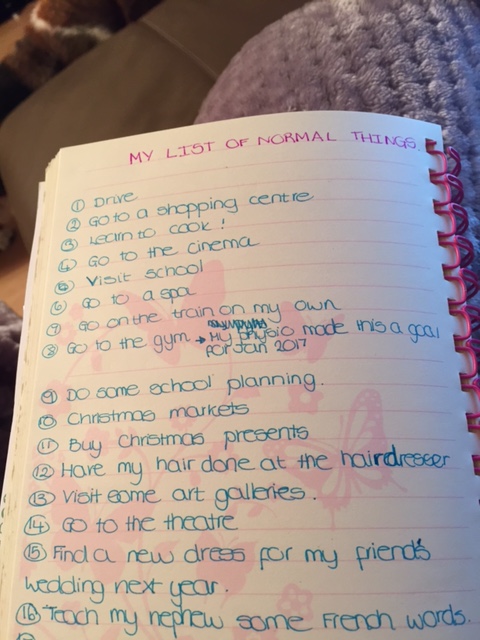 MY LIST OF NORMAL THINGS.
① Drive
② Go to a shopping centre
③ Learn to cook!
④ Go to the cinema
⑤ Visit school
⑥ Go to a spa
⑦ Go on the train on my own
⑧ Go to the gym → My physio made this a goal
for Jan 2017
⑨ Do some school planning.
⑩ Christmas markets
⑪ Buy Christmas presents
⑫ Have my hair done at the hairdresser
⑬ Visit some art galleries.
⑭ Go to the theatre
⑮ Find a new dress for my friend's
wedding next year.
⑯ Teach my nephew some French words.